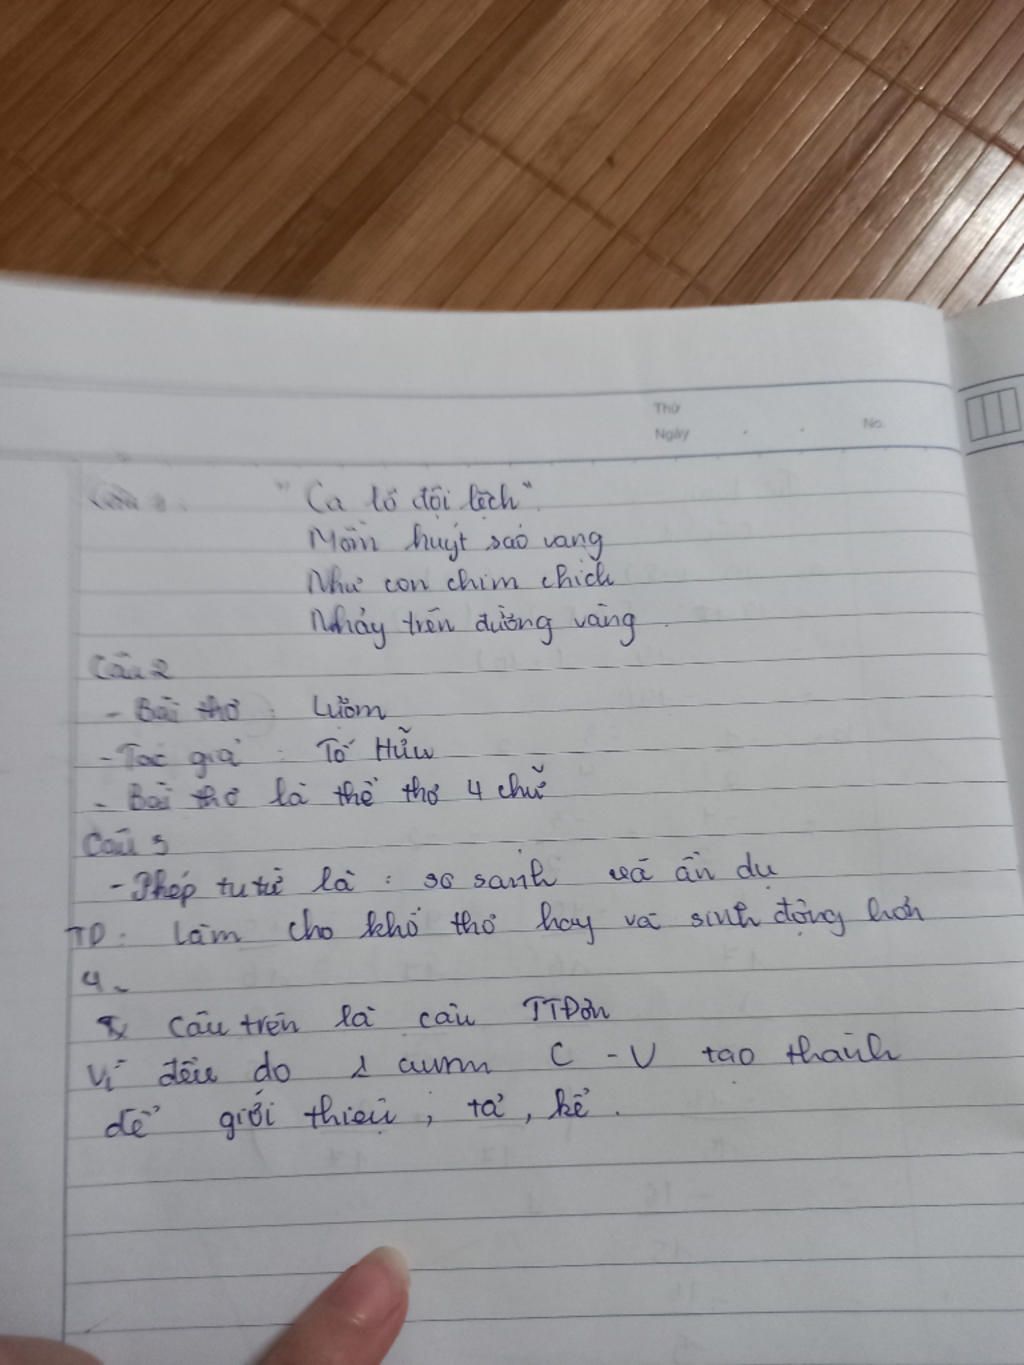 Thứ
Ngày No.
"Ca lô đội lệch"
Mồm huýt sáo vang
Như con chim chích
Nhảy trên đường vàng.
Câu 2
- Bài thơ : Lượm
- Tác giả : Tố Hữu
- Bài thơ là thể thơ 4 chữ
Câu 3
- Phép tu từ là : so sánh và ẩn dụ
TD : làm cho khổ thơ hay và sinh động hơn
4.
Câu trên là câu TTĐơn
Vì đều do 1 cụm C - V tạo thành
để giới thiệu, tả, kể.